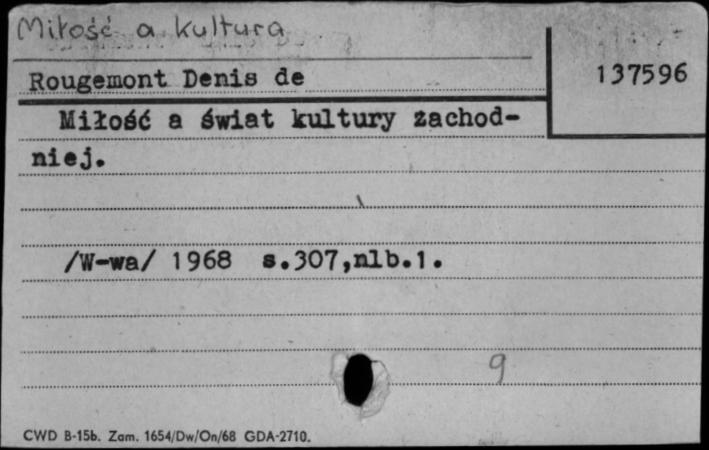 Miłość a kultura
Rougemont Denis de
137596
Miłość a świat kultury zachod-
niej.
/W-wa/ 1968 s.307,nlb.1.
9
CWD B-15b. Zam. 1654/Dw/On/68 GDA-2710.